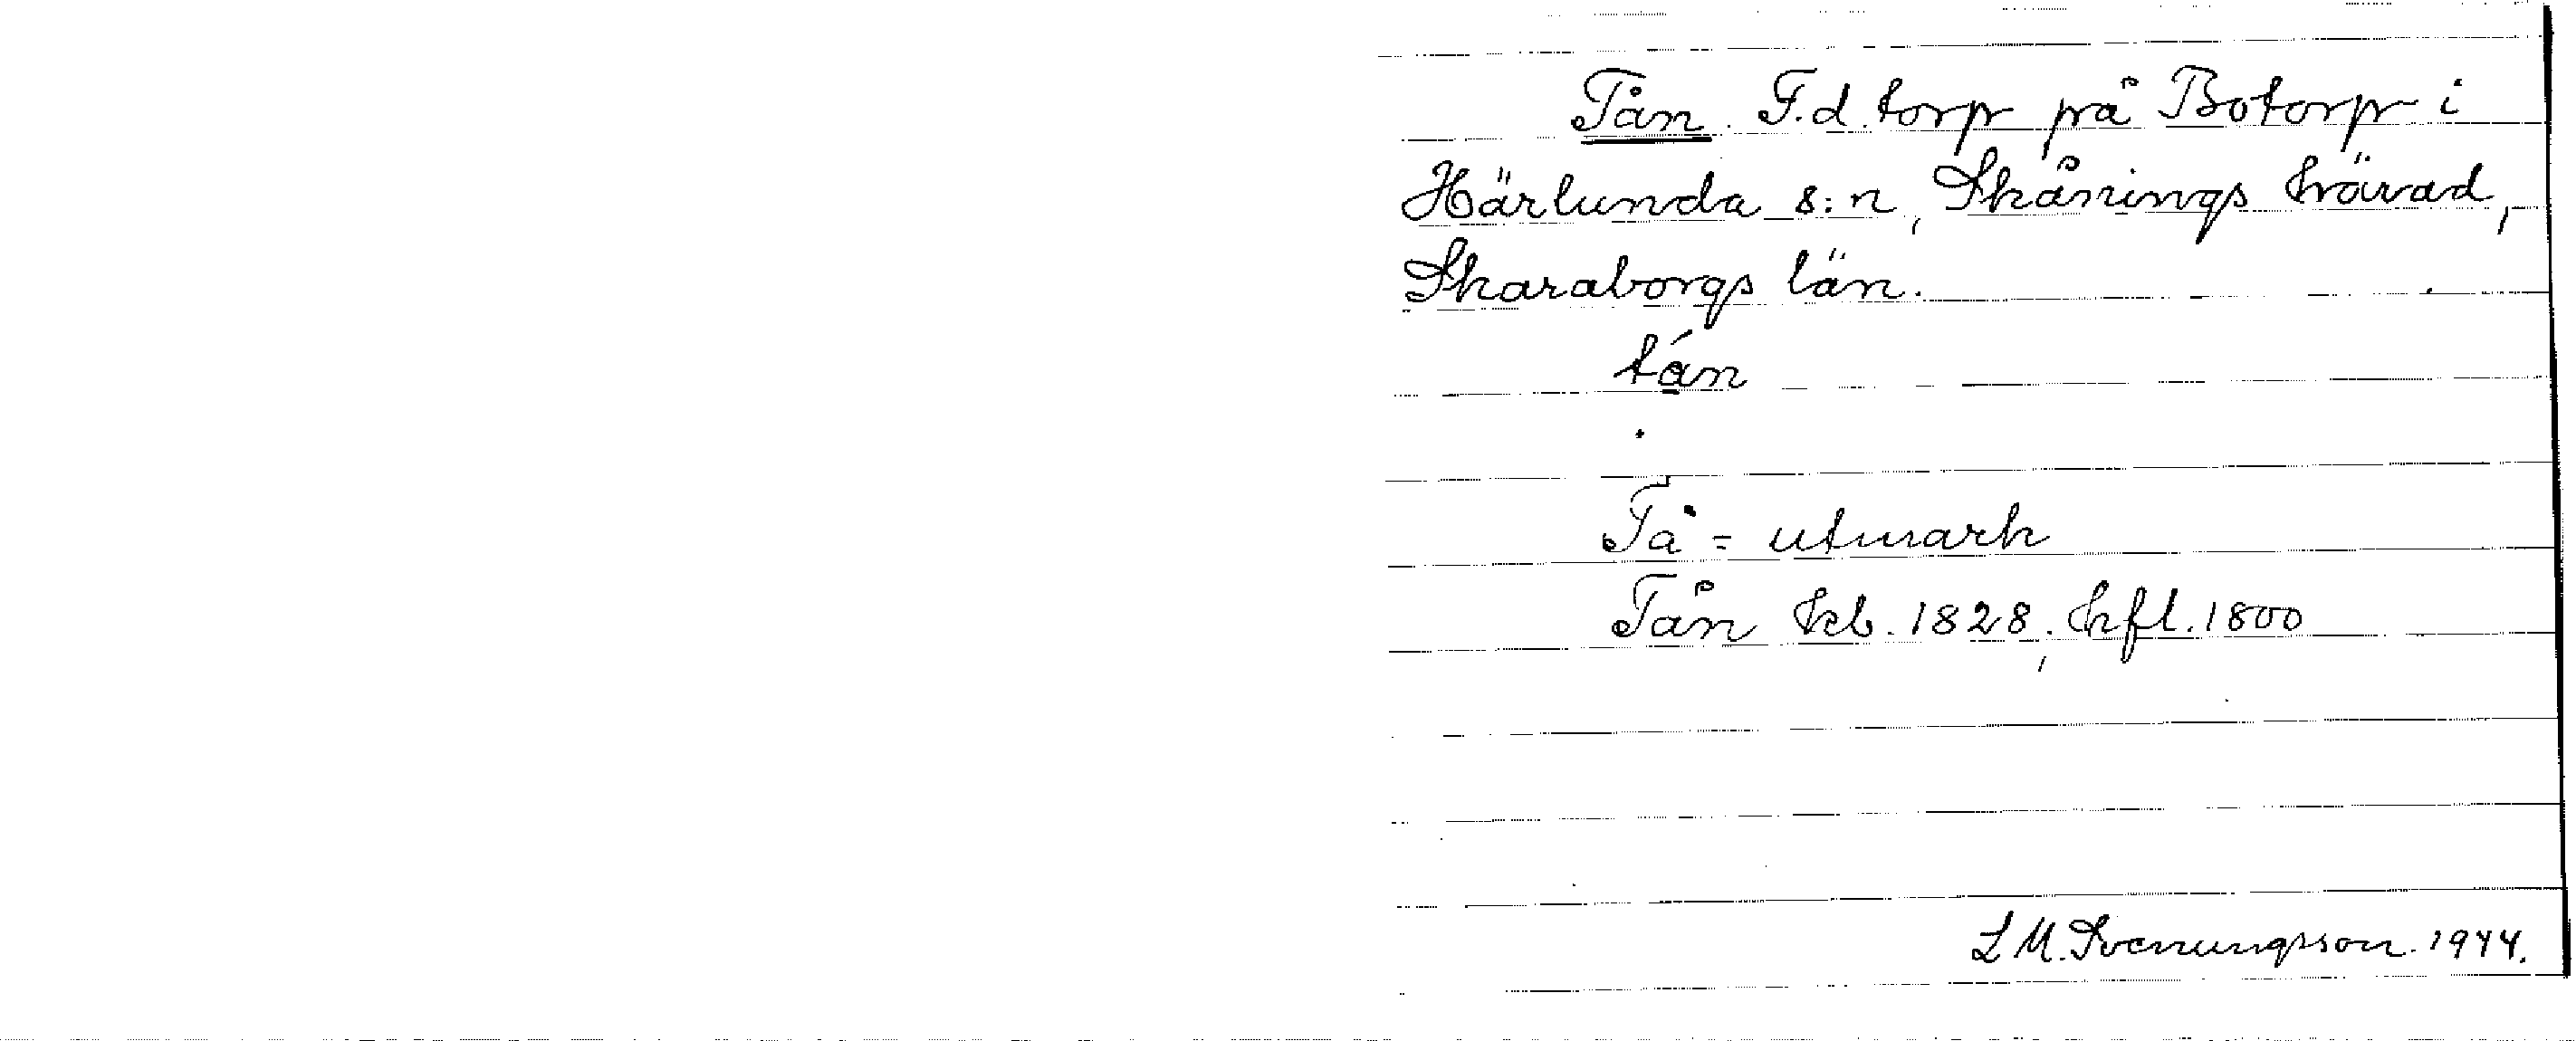 Tån. F.d. torp på Botorp i
Härlunda s:n, Skånings härad,
Skaraborgs län.
tán
Tå = utmark
Tån kb. 1828, hfl. 1800
L M. Svenungsson. 1944.